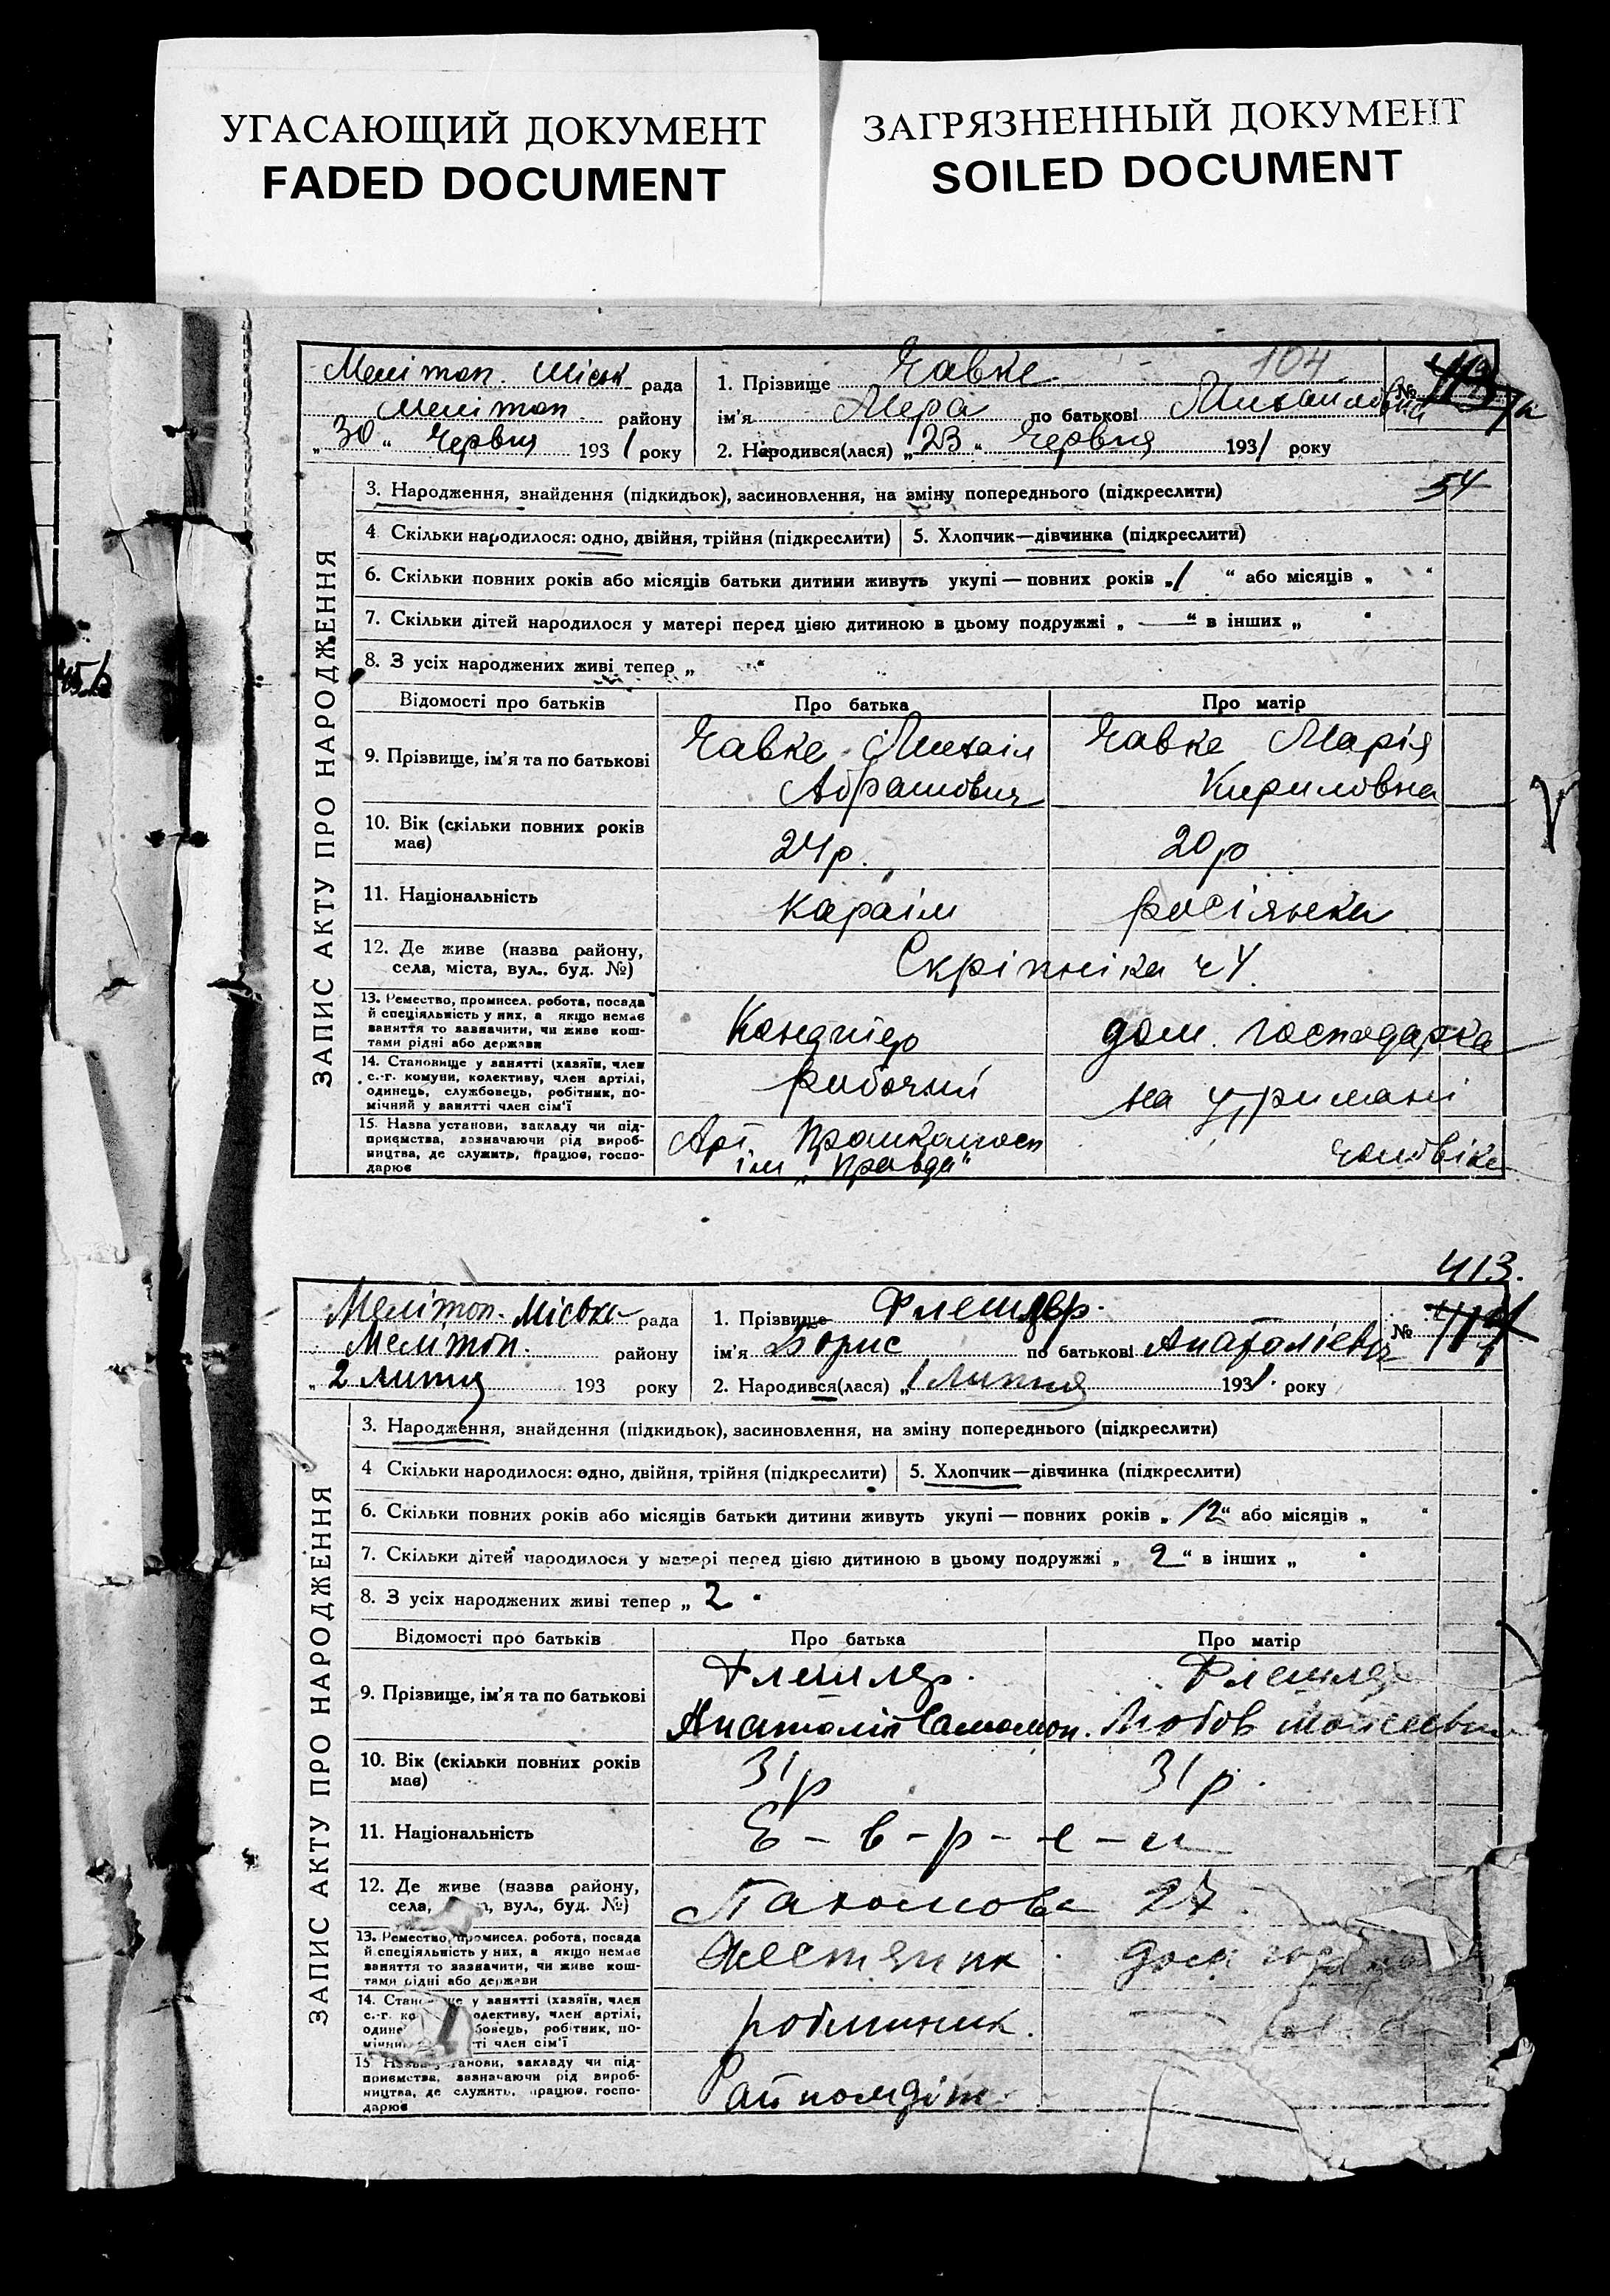 УГАСАЮЩИЙ ДОКУМЕНТ
FADED DOCUMENT
ЗАГРЯЗНЕННЫЙ ДОКУМЕНТ
SOILED DOCUMENT
ЗАПИС АКТУ ПРО НАРОДЖЕННЯ
Мелітоп. Міськ рада
Мелітоп. району
„30“ Червня 1931 року
1. Прізвище Чавке 104
ім'я Мера по батькові
2. Народився(лася) „23“ Червня 1931 року
№
54
3. Народження, знайдення (підкидьок), засиновлення, на зміну попереднього (підкреслити)
4 Скільки народилося: одно, двійня, трійня (підкреслити) 5. Хлопчик—дівчинка (підкреслити)
6. Скільки повних років або місяців батьки дитини живуть укупі — повних років „1“ або місяців „ “
7. Скільки дітей народилося у матері перед цією дитиною в цьому подружжі „ — “ в інших „ “
8. З усіх народжених живі тепер „ “
Відомості про батьків Про батька Про матір
9. Прізвище, ім'я та по батькові Чавке Михаіл Абрамович Чавке Марія Кириловна
10. Вік (скільки повних років має) 24 р. 20 р
11. Національність Караім росіянка
12. Де живе (назва району, села, міста, вул., буд. №) Скріпніка 24
13. Ремество, промисел, робота, посада й спеціяльність у них, а якщо немає заняття то зазначити, чи живе коштами рідні або держави Кондитер дом. господарка
14. Становище у занятті (хазяїн, член с.-г. комуни, колективу, член артілі, одинець, службовець, робітник, помічний у занятті член сім'ї рабочий на утримані
15. Назва установи, закладу чи підприємства, зазначаючи рід виробництва, де служить, працює, господарює Арт. ім „Правда“ чоловіка
413.
ЗАПИС АКТУ ПРО НАРОДЖЕННЯ
Мелітоп. Міська рада
Мелітоп. району
„2 Липня 193 року
1. Прізвище Флешлер.
ім'я Борис по батькові Анатолієвич
2. Народився(лася) „1 Липня 1931. року
№
3. Народження, знайдення (підкидьок), засиновлення, на зміну попереднього (підкреслити)
4 Скільки народилося: одно, двійня, трійня (підкреслити) 5. Хлопчик—дівчинка (підкреслити)
6. Скільки повних років або місяців батьки дитини живуть укупі — повних років „12“ або місяців „ “
7. Скільки дітей народилося у матері перед цією дитиною в цьому подружжі „2“ в інших „ “
8. З усіх народжених живі тепер „2“
Відомості про батьків Про батька Про матір
9. Прізвище, ім'я та по батькові Флешлер. Анатолій Саломон. Флешлер Любов
10. Вік (скільки повних років має) 31 р 31 р.
11. Національність Е-в-р-е-и
12. Де живе (назва району, села, вул., буд. №) Пахомова 27.
13. Ремество, промисел, робота, посада й спеціяльність у них, а якщо немає заняття то зазначити, чи живе коштами рідні або держави Жестяник дом.
14. Становище у занятті (хазяїн, член с.-г. колективу, член артілі, робітник, по- ті член сім'ї робитник.
15 Назва установи, закладу чи підприємства, зазначаючи рід виробництва, де служить, працює, господарює Райпомдіт.